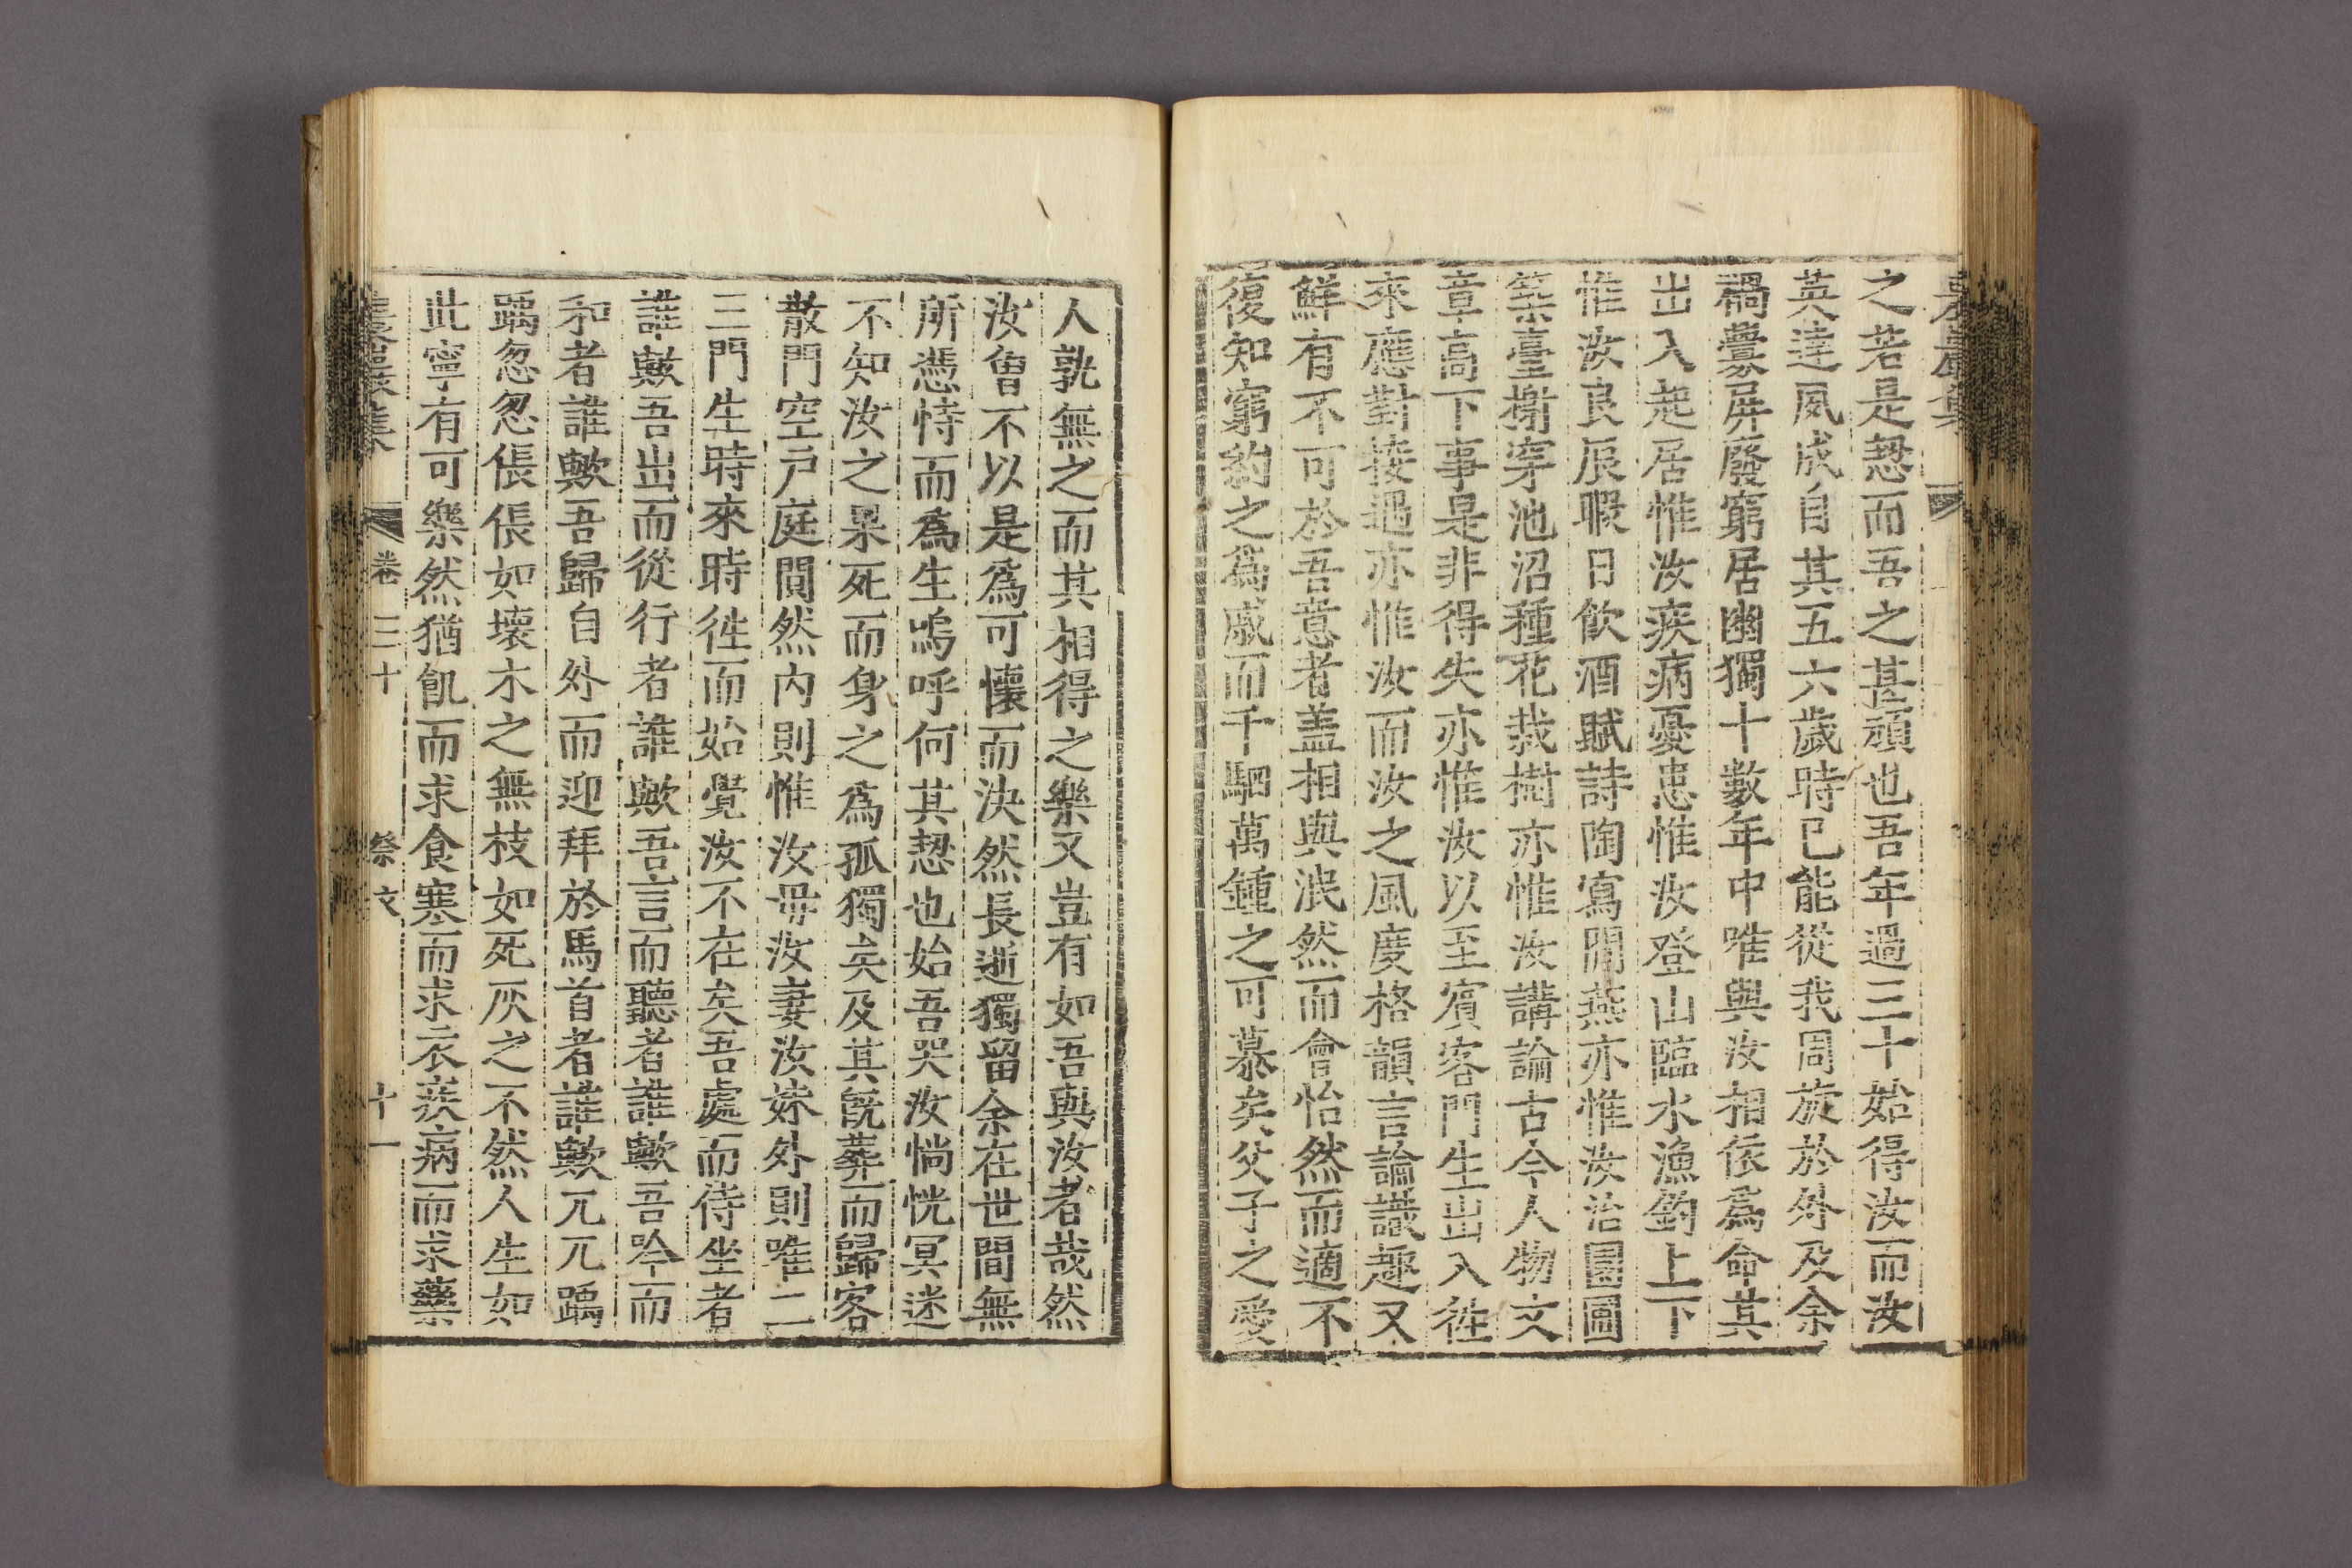 之若是愸而吾之甚頑也吾年過三十始得汝而汝
英達夙成自其五六歲時已能從我周旋於外及余
禍釁屏廢窮居幽獨十數年中唯與汝相依爲命其
出入起居惟汝疾病憂患惟汝登山臨水漁釣上下
惟汝良辰暇日飮酒賦詩陶寫閒燕亦惟汝治園圃
築臺榭穿池沼種花栽樹亦惟汝講論古今人物文
章高下事是非得失亦惟汝以至賓客門生出入徃
來應對接遇亦惟汝而汝之風度格韻言論識趣又
鮮有不可於吾意者盖相與泯然而會怡然而適不
復知窮約之爲戚而千駟萬鍾之可慕矣父子之愛
人孰無之而其相得之樂又豈有如吾與汝者哉然
汝曾不以是爲可懷而決然長逝獨留余在世間無
所憑恃而爲生嗚呼何其愸也始吾哭汝惝恍冥迷
不知汝之果死而身之爲孤獨矣及其旣葬而歸客
散門空戶庭閴然內則惟汝母汝妻汝妹外則唯二
三門生時來時徃而始覺汝不在矣吾處而待坐者
誰歟吾出而從行者誰歟吾言而聽者誰歟吾吟而
和者誰歟吾歸自外而迎拜於馬首者誰歟兀兀踽
踽忽忽倀倀如壞木之無枝如死灰之不然人生如
此寧有可樂然猶飢而求食寒而求衣疾病而求藥
卷三十 祭文 十一